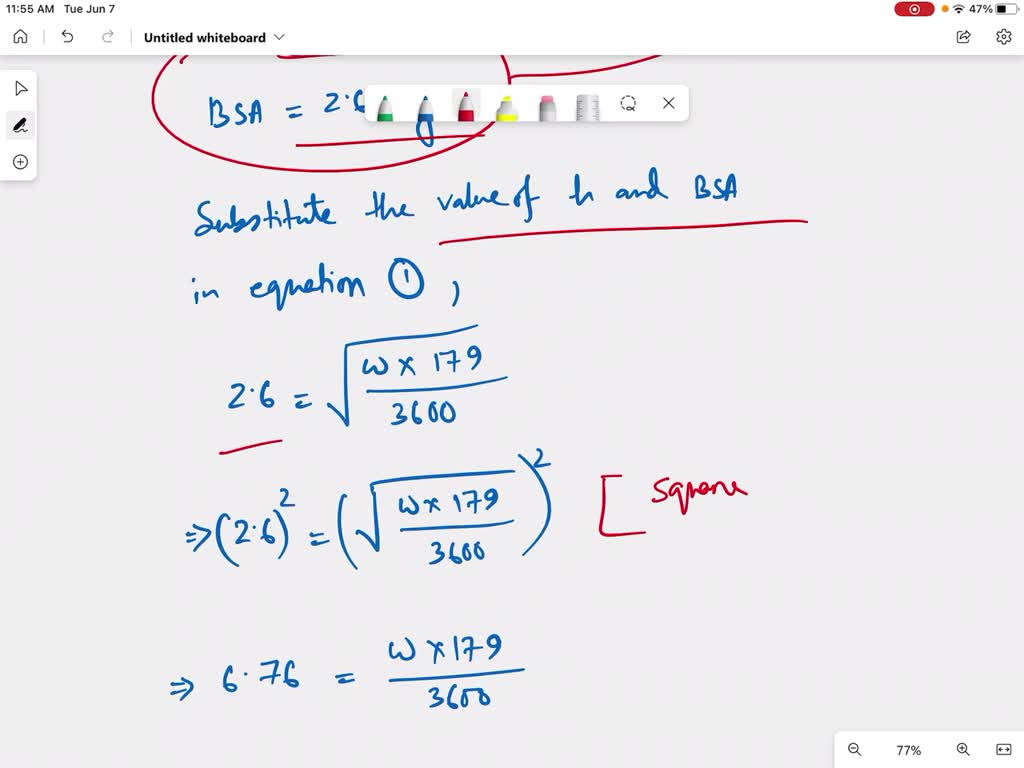 11:55 AM Tue Jun 7
47%
Untitled whiteboard
BSA = 2.6
Substitute the value of h and BSA
in equation ①,
2.6 = √(W × 179 / 3600)
⇒ (2.6)² = (√(W × 179 / 3600))² [ Square
⇒ 6.76 = W × 179 / 3600
77%